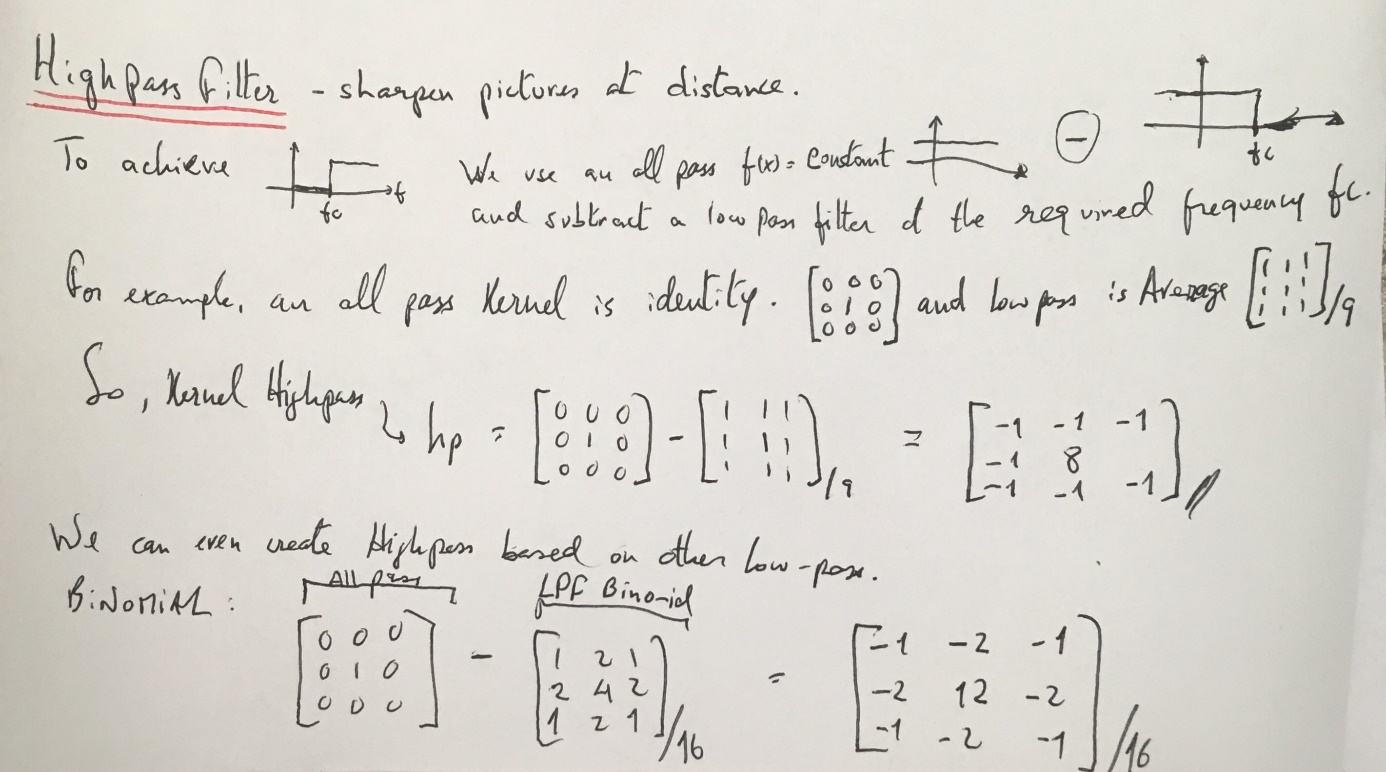 High Pass Filter - sharpen pictures at distance.
To achieve fc f We use an all pass f(x) = Constant - fc
and subtract a low pass filter of the required frequency fc.
For example, an all pass Kernel is identity. [0 0 0 0 1 0 0 0 0] and low pass is Average [1 1 1 1 1 1 1 1 1]/9
So, Kernel Highpass
hp = [0 0 0 0 1 0 0 0 0] - [1 1 1 1 1 1 1 1 1]/9 = [-1 -1 -1 -1 8 -1 -1 -1]
We can even create Highpass based on other low-pass.
BiNOMiAL: All pass LPF Binomial
[0 0 0 0 1 0 0 0 0] - [1 2 1 2 4 2 1 2 1]/16 = [-1 -2 -1 -2 12 -2 -1 -2 -1]/16